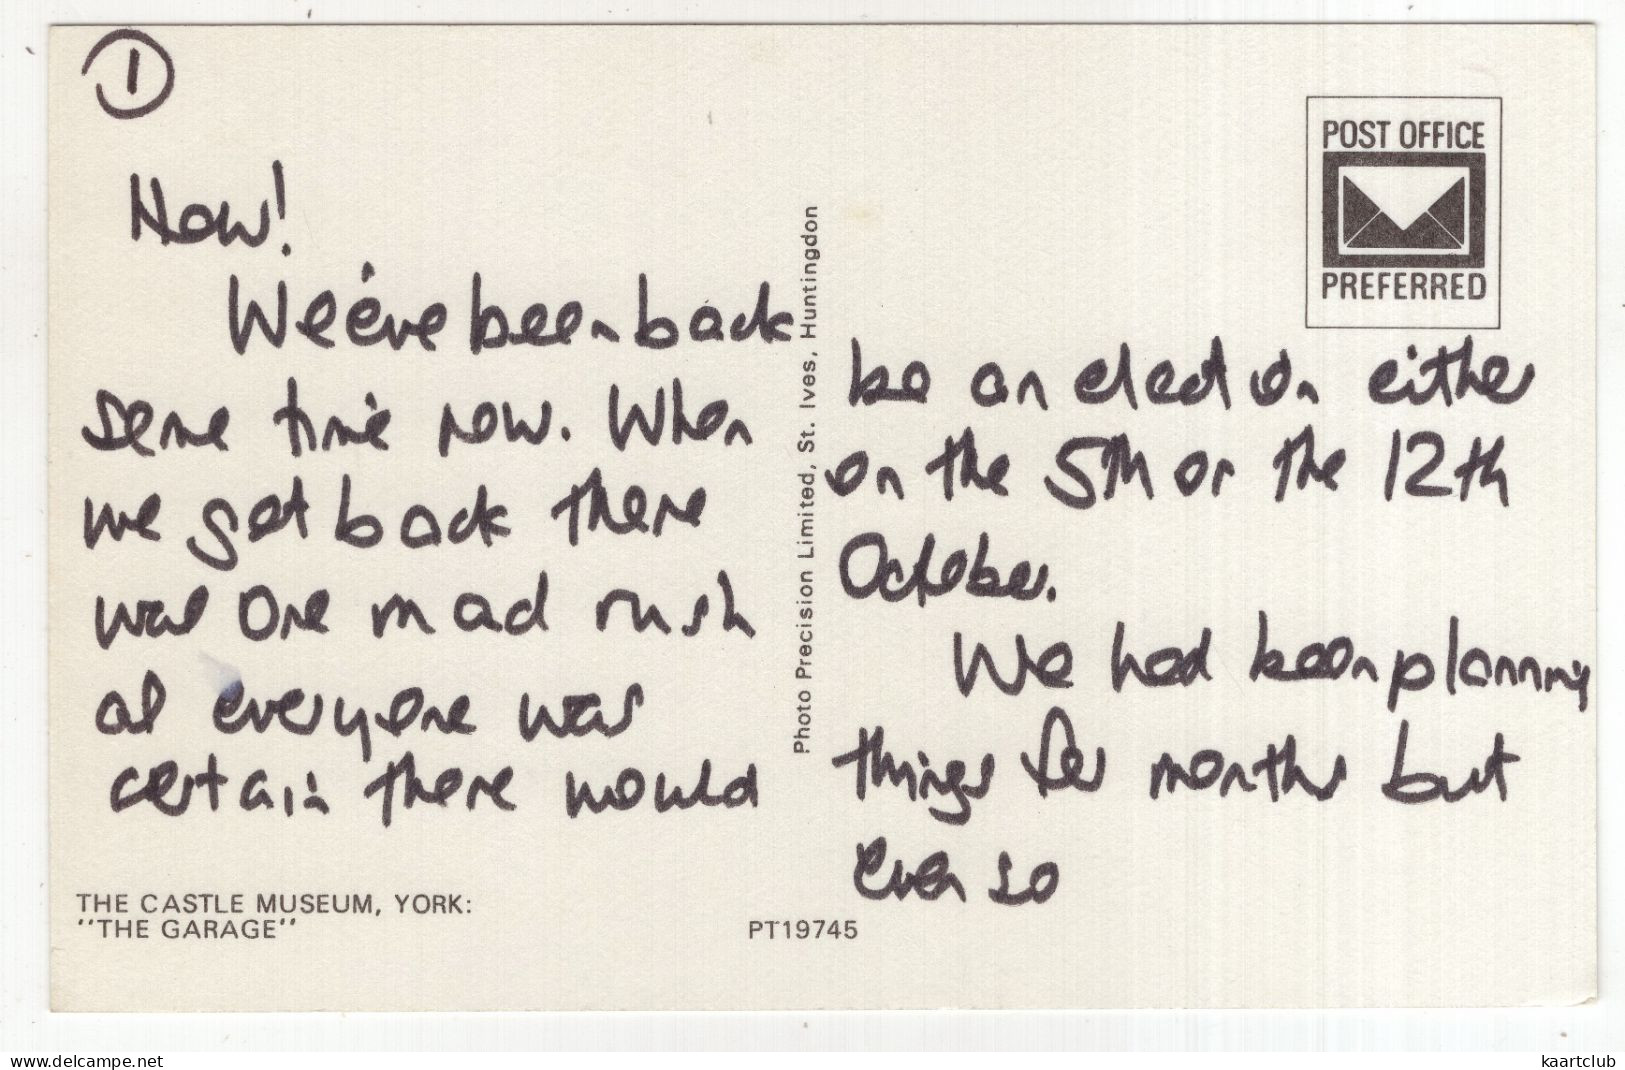 1
Now!
We've been back
some time now. When
we got back there
was one mad rush
as everyone was
certain there would
THE CASTLE MUSEUM, YORK:
"THE GARAGE"
PT19745
Photo Precision Limited, St. Ives, Huntingdon
POST OFFICE
PREFERRED
be an election either
on the 5th or the 12th
October.
We had been planning
things for months but
even so
delcampe.net
kaartclub